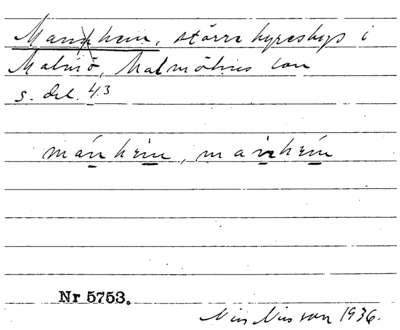 Mannhem, större hyreshus i
Malmö, Malmöhus län
s. del. 43
mánhem, manhém
Nr 5753.
Nils Nilsson 1936.